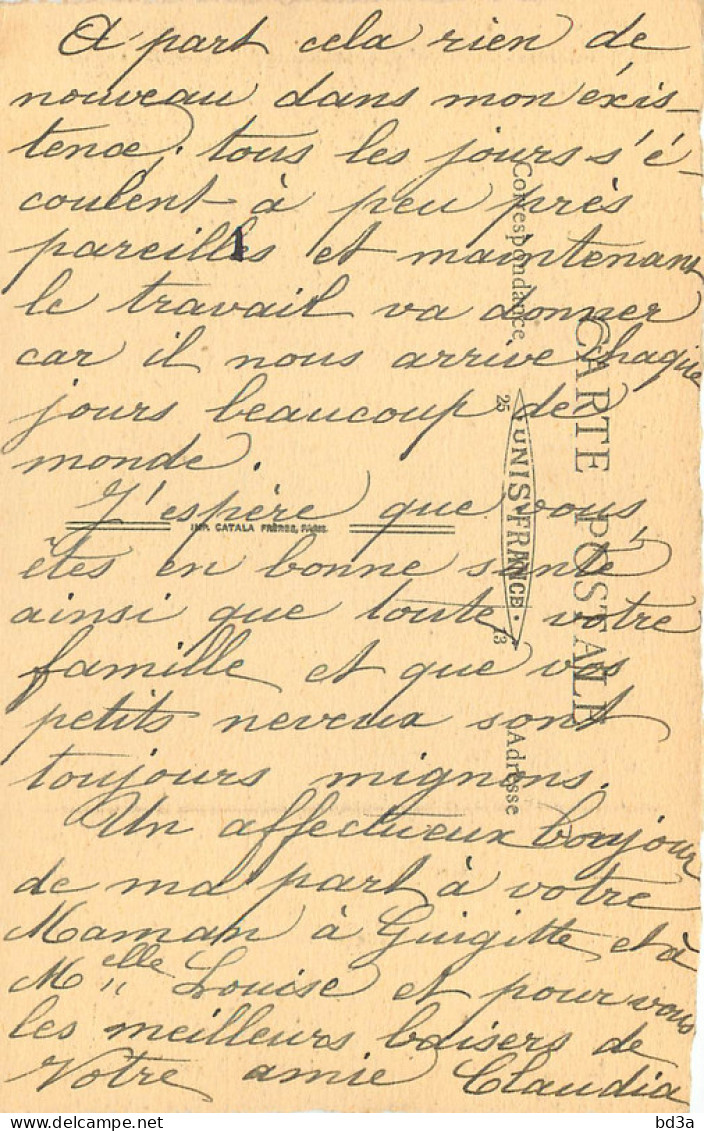 A part cela rien de
nouveau dans mon éxis-
tence, tous les jours s'é-
coulent à peu près
pareilles et maintenant
le travail va donner
car il nous arrive chaque
jours beaucoup de
monde.
J'espère que vous
êtes en bonne santé
ainsi que toute votre
famille et que vos
petits neveux sont
toujours mignons.
Un affectueux bonjour
de ma part à votre
Maman à Guigitte et à
Melle Louise et pour vous
les meilleurs baisers de
Votre amie Claudia
CARTE POSTALE
Correspondance
Adresse
25 UNIS-FRANCE 73
IMP. CATALA FRÈRES, PARIS
delcampe.net
bd3a